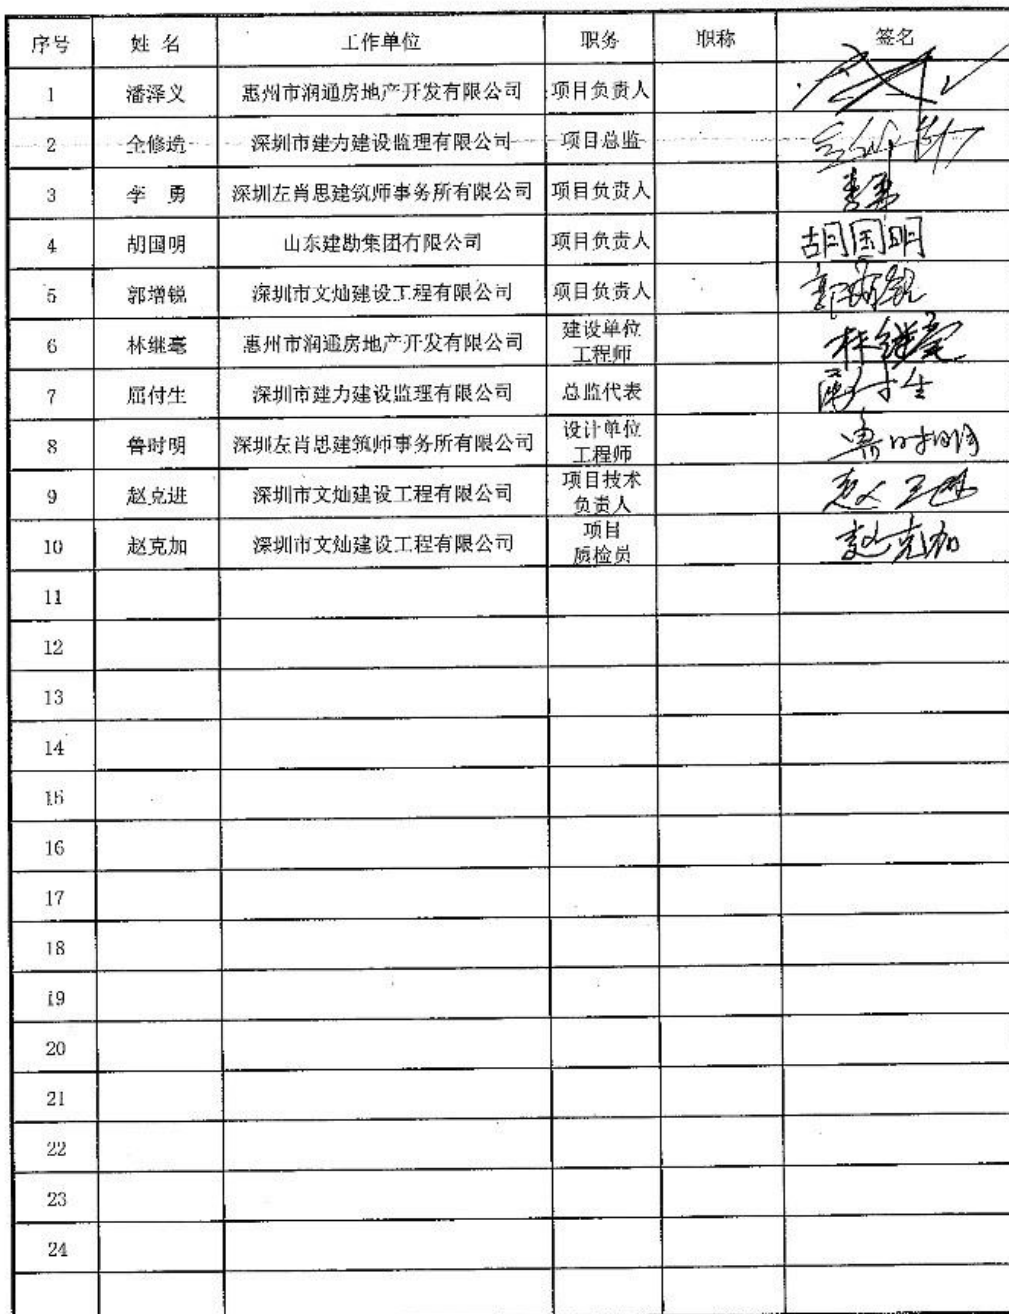 序号 姓 名 工作单位 职务 职称 签名
1 潘泽义 惠州市润通房地产开发有限公司 项目负责人
2 仝修造 深圳市建力建设监理有限公司 项目总监
3 李 勇 深圳左肖思建筑师事务所有限公司 项目负责人
4 胡国明 山东建勘集团有限公司 项目负责人 胡国明
5 郭增锐 深圳市文灿建设工程有限公司 项目负责人 郭增锐
6 林继毫 惠州市润通房地产开发有限公司 建设单位
工程师 林继毫
7 屈付生 深圳市建力建设监理有限公司 总监代表 屈付生
8 鲁时明 深圳左肖思建筑师事务所有限公司 设计单位
工程师 鲁时明
9 赵克进 深圳市文灿建设工程有限公司 项目技术
负责人
10 赵克加 深圳市文灿建设工程有限公司 项目
质检员 赵克加
11
12
13
14
15
16
17
18
19
20
21
22
23
24